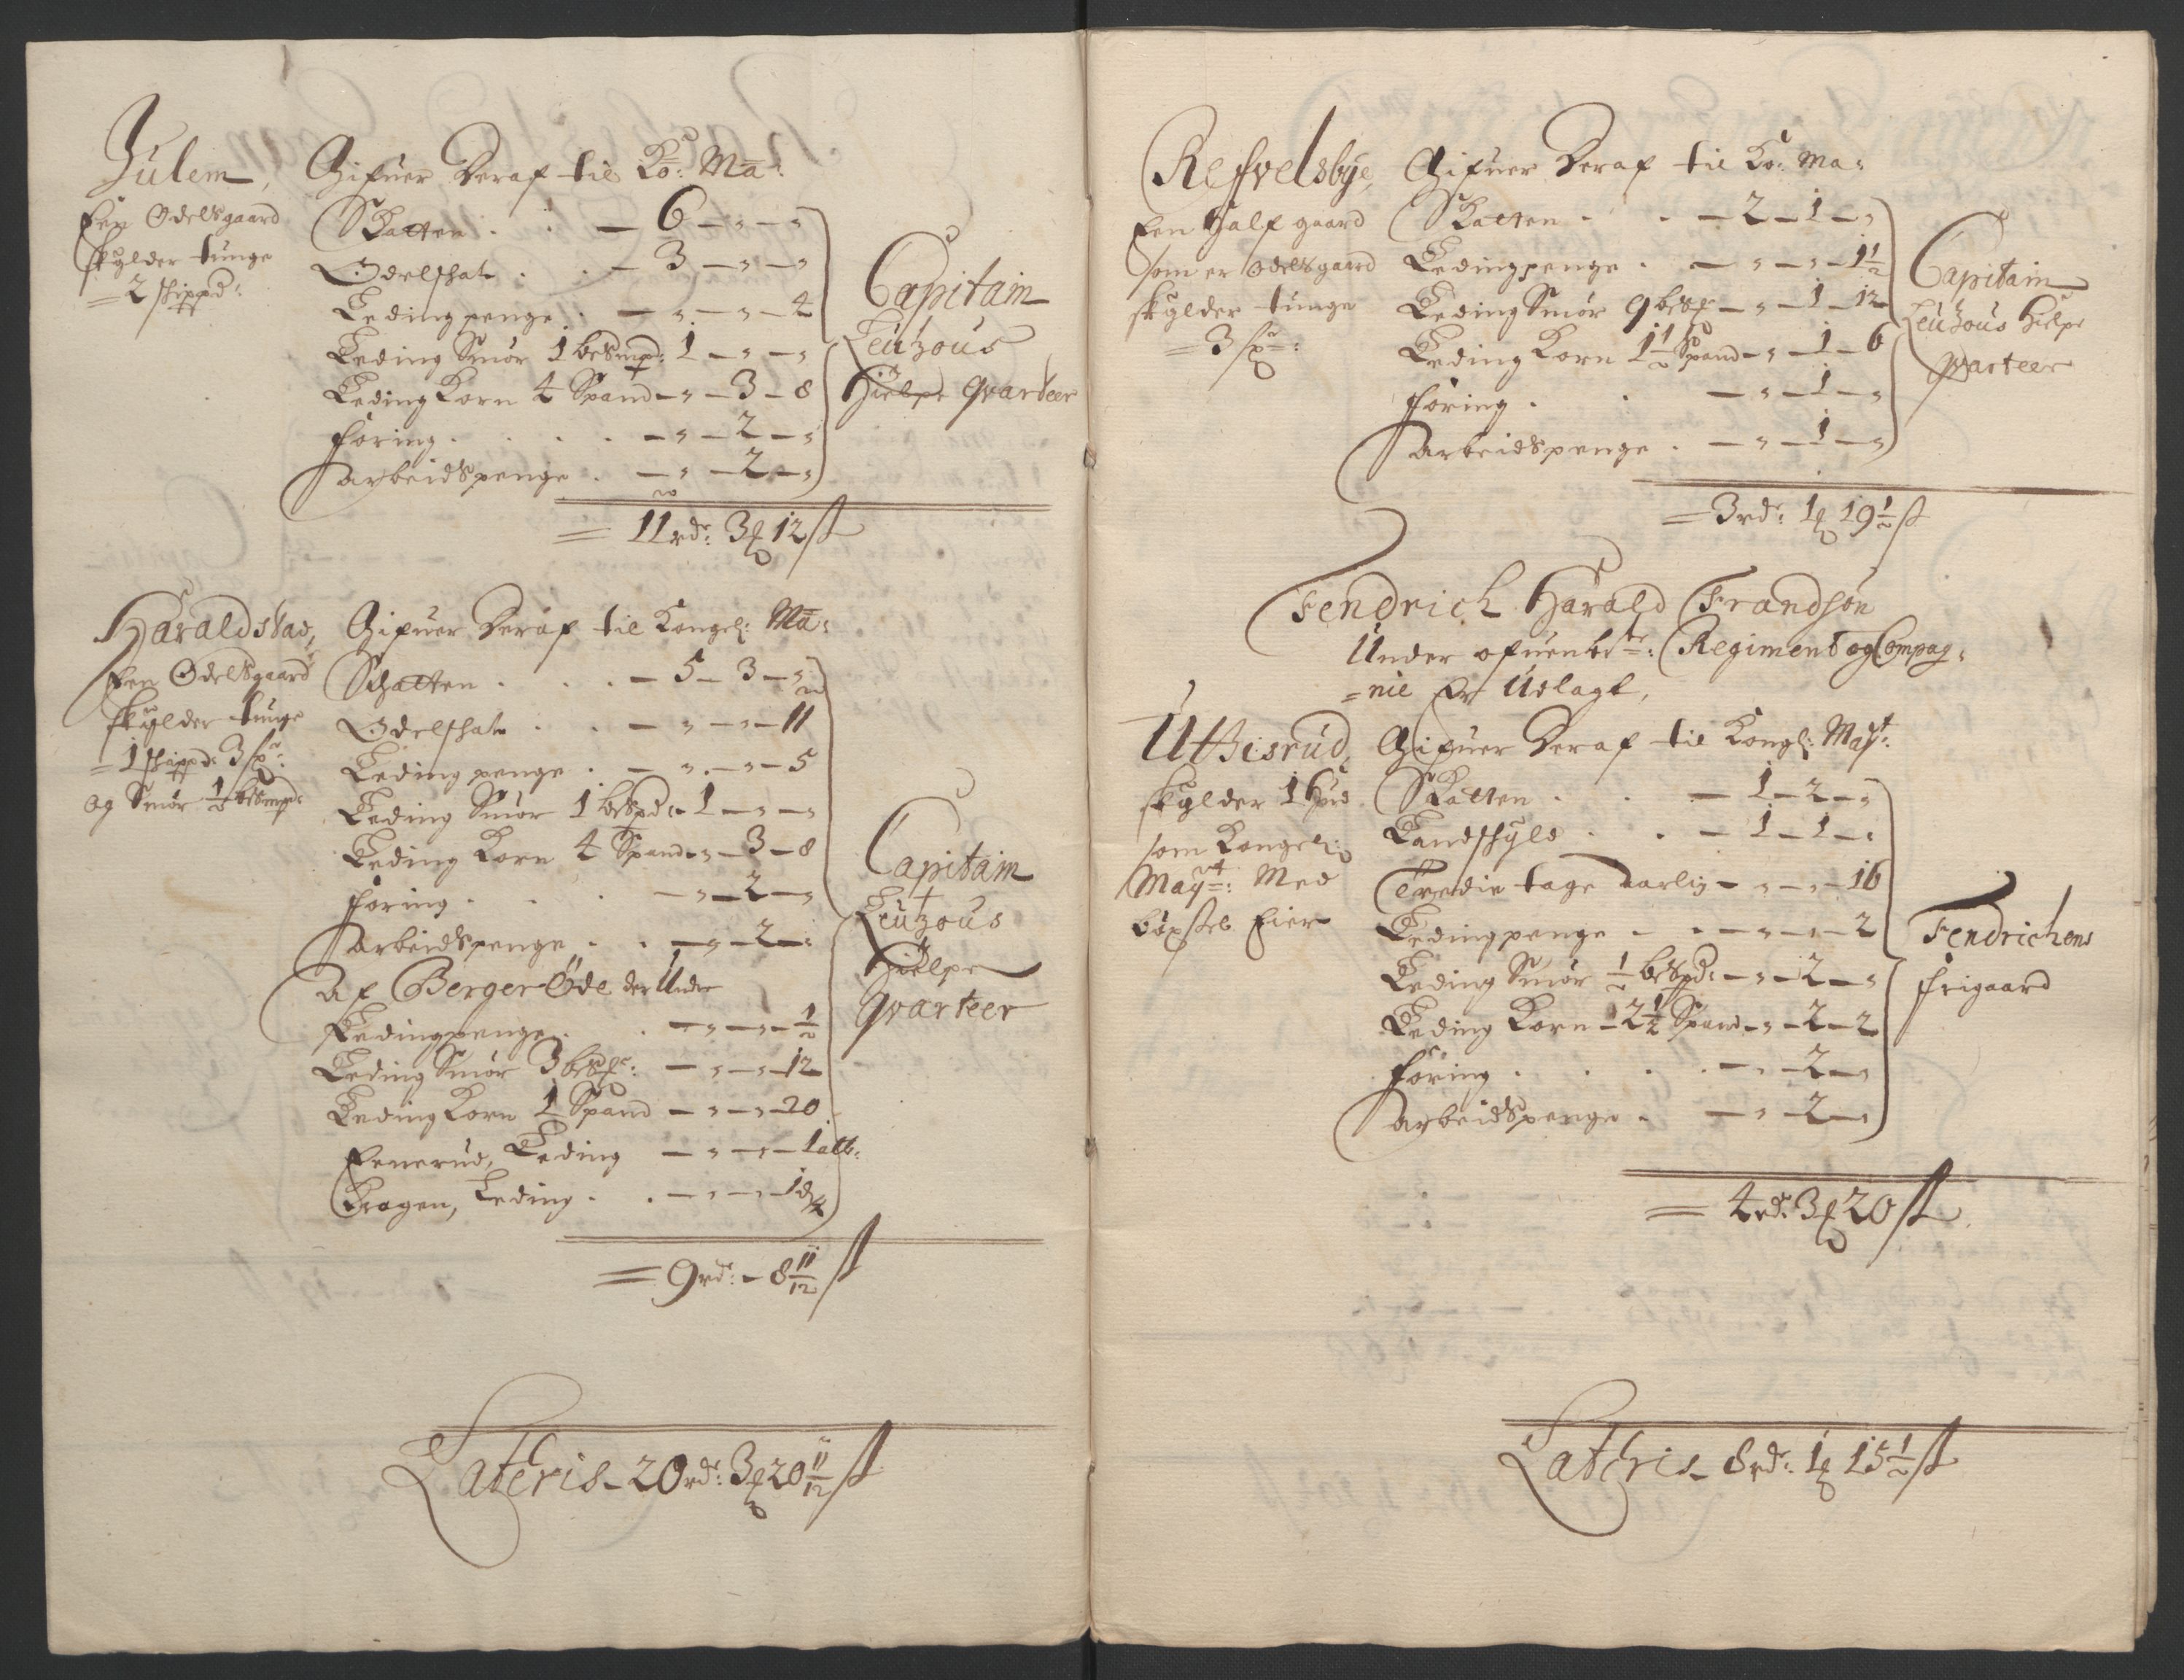 Julem,
Een Odelsgaard
skylder tunge
= 2 skippd:
Gifuer Deraf til Ko: Ma:
Skatten . . — 6 — „ — „
Odelskat . . — 3 — „ — „
Leding penge . — „ — „ — 4
Leding Smør 1 besmpd: 1 — „ — „
Leding Korn 4 Spand — „ — 3 — 8
foring . . . . — „ — 2 — „
Arbeidspenge . — „ — 2 — „
Capitain
Leutzous
Hielpe qvarteer
= 11 rdr: 3 ₰ 12 ß
Haraldstad,
Een Odelsgaard
skylder tunge
= 1 skippd: 3
og Smør 1/2 besmpd:
Gifuer Deraf til Kongel: Ma:
Schatten . . . — 5 — 3 — „
Odelskat . . — „ — „ — 11
Leding penge . — „ — „ — 5
Leding Smør 1 bespd: — 1 — „ — „
Leding Korn 4 Spand — „ — 3 — 8
foring . . . — „ — 2 — „
Arbeidspenge . . — „ — 2 — „
Af Berger Øde der Under
Ledingpenge . . — „ — „ — 1/2
Leding Smør 3 — „ — „ — 12
Leding Korn 1 Spand — „ — „ — 20
Enerud, Leding — „ — „ — 1 alb:
Kragen, Leding . . — „ — „ — 1
Capitain
Leutzous
Hielpe
qvarteer
= 9 rdr: — 8 11/12 ß
Lateris — 20 rdr: 3 ₰ 20 11/12 ß
Reffvelsbye,
Een Half gaard
som er Odelsgaard
skylder tunge
= 3
Gifuer Deraf til Ko: Ma:
Skatten . . — 2 — 1 — „
Ledingpenge . — „ — „ — 1 1/2
Leding Smør 9 — „ — 1 — 12
Leding Korn 1 1/2 Spand — „ — 1 — 6
foring . . — „ — 1 — „
Arbeidspenge . — „ — 1 — „
Capitain
Leutzous Hielpe
qvarteer
= 3 rdr: 1 ₰ 19 1/2 ß
Fendrich Harald Frandsøn
Under ofuenbte: Regiment og Compag=
=nie Er Udlagt,
Uttisrud,
skylder 1 Hud
som Kongel:
Mayt: Med
bøxsel Eier
Gifuer Deraf til Kongl: Mayt:
Skatten . . — 1 — 2 — „
Landskyld . . — 1 — 1 — „
Tredie tage aarlig — „ — „ — 16
Ledingpenge — . — „ — „ — 2
Leding Smør 1/2 bespd: — „ — 2 — „
Leding Korn — 2 1/2 Spand — „ — 2 — 2
foring . . . . — „ — 2 — „
Arbeidspenge . — „ — 2 — „
Fendrichens
frigaard
= 4 rdr: 3 ₰ 20 ß
Lateris — 8 rdr: 1 ₰ 15 1/2 ß